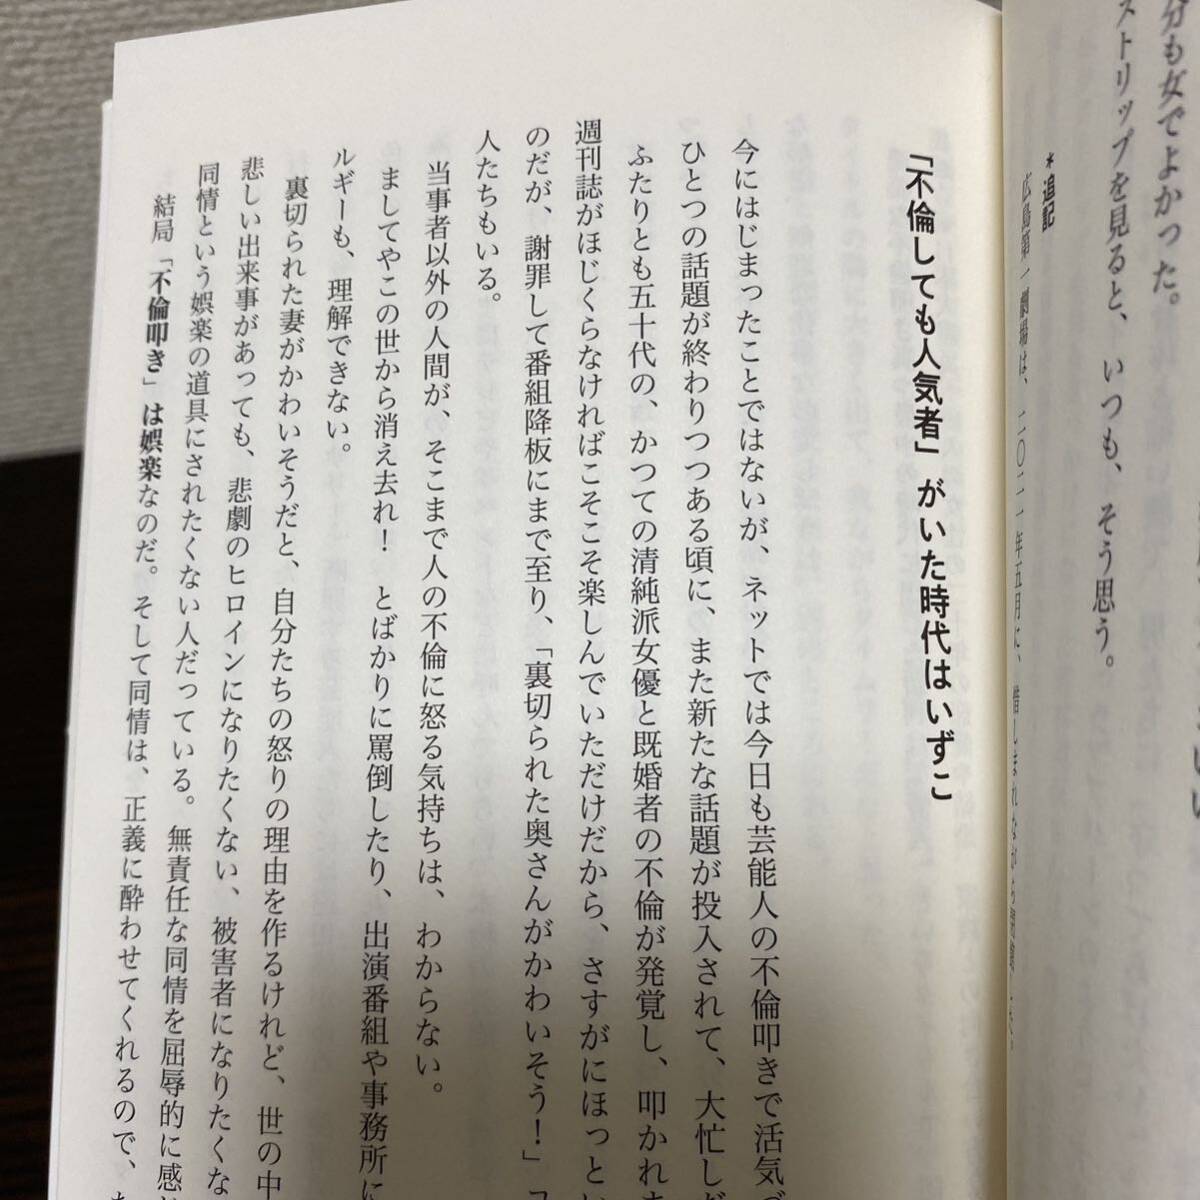 分も女でよかった。
ストリップを見ると、いつも、そう思う。
＊追記
広島第一劇場は、二〇二一年五月に、惜しまれながら閉館
「不倫しても人気者」がいた時代はいずこ
今にはじまったことではないが、ネットでは今日も芸能人の不倫叩きで活気づ
ひとつの話題が終わりつつある頃に、また新たな話題が投入されて、大忙しだ
ふたりとも五十代の、かつての清純派女優と既婚者の不倫が発覚し、叩かれま
週刊誌がほじくらなければこそこそ楽しんでいただけだから、さすがにほっとい
のだが、謝罪して番組降板にまで至り、「裏切られた奥さんがかわいそう！」
人たちもいる。
当事者以外の人間が、そこまで人の不倫に怒る気持ちは、わからない。
ましてやこの世から消え去れ！　とばかりに罵倒したり、出演番組や事務所に
ルギーも、理解できない。
裏切られた妻がかわいそうだと、自分たちの怒りの理由を作るけれど、世の中
悲しい出来事があっても、悲劇のヒロインになりたくない、被害者になりたくな
同情という娯楽の道具にされたくない人だっている。無責任な同情を屈辱的に感じ
結局「不倫叩き」は娯楽なのだ。そして同情は、正義に酔わせてくれるので、